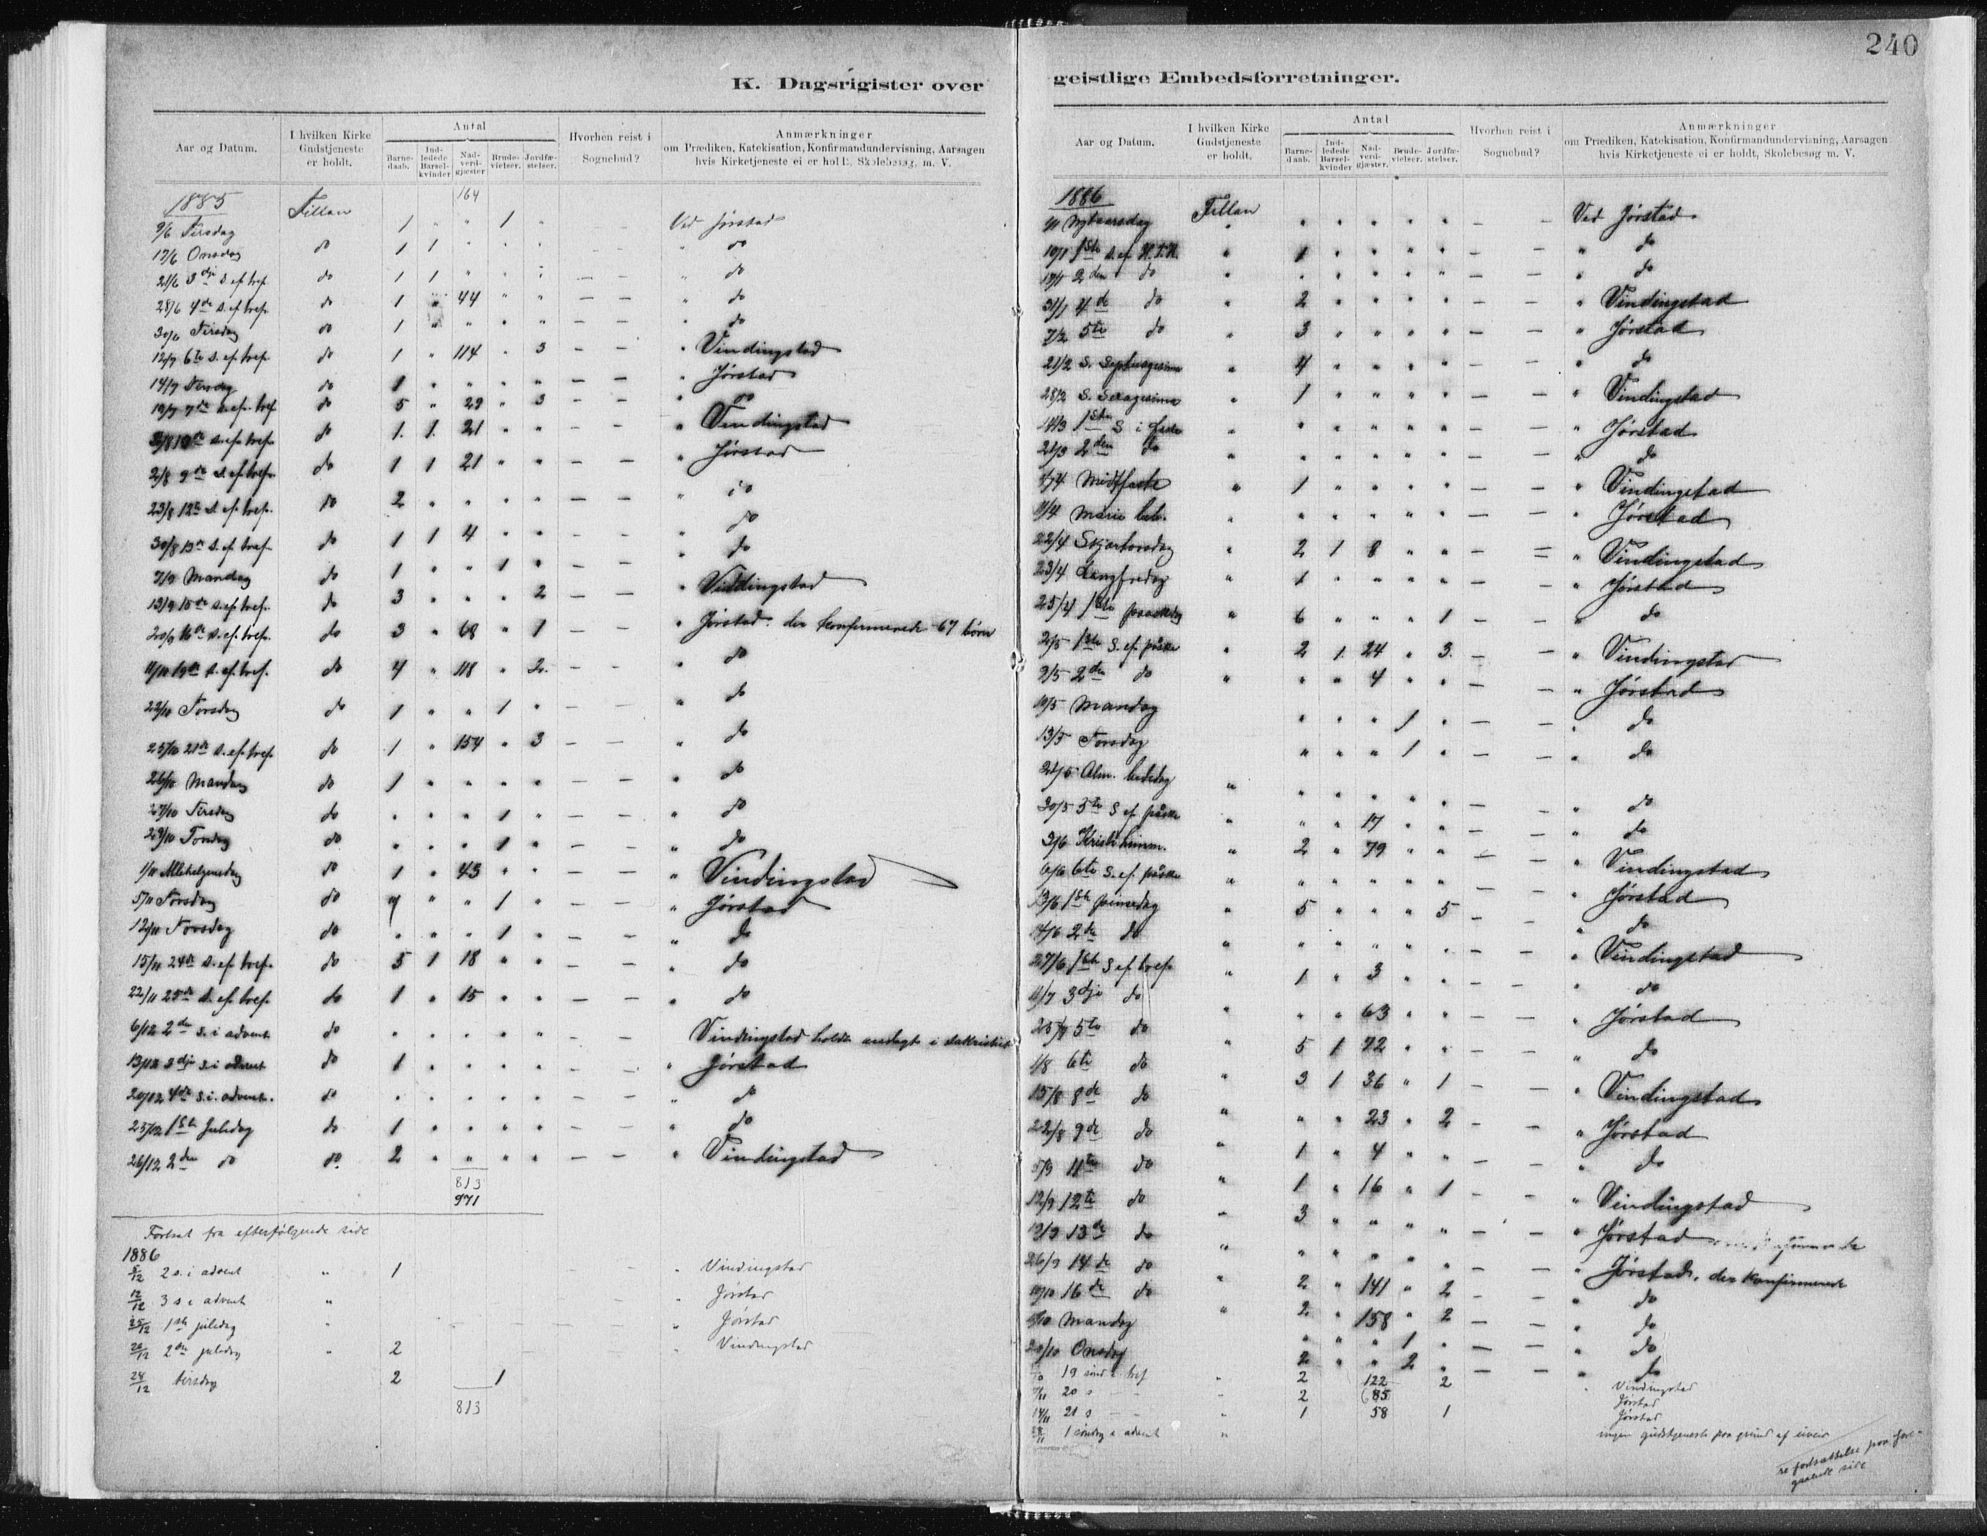 240
K. Dagsrigister over geistlige Embedsforretninger.
Aar og Datum. | I hvilken Kirke Gudstjeneste er holdt. | Antal | Barne-daab. | Ind-ledede Barsel-kvinder | Nad-verd-gjæster | Brude-vielser. | Jordfæ-stelser. | Hvorhen reist i Sognebud? | Anmærkninger om Prædiken, Katekisation, Konfirmandundervisning, Aarsagen hvis Kirketjeneste ei er holdt, Skolebesøg, m. V.
1885 Fillan 164
9/6 Tirsdag 1 " " 1 " Ved Jørstad
17/6 Onsdag do 1 1 " " " " do
21/6 3dje s. ef. tref. do 1 1 " " " — — " do
28/6 4de s. ef. tref. do 1 " 44 " " — — " do
30/6 Tirsdag do 1 " " " " — — " do
12/7 6te s. ef. tref. do 1 " 114 " 3 — — " Vindingstad
14/7 Tirsdag do 1 " " " " — — " Jørstad
19/7 7de s. ef. tref. do 5 " 29 " 3 — — " do
do 1. 1. 21 " " — — " Vindingstad
2/8 9de s. ef. tref. do 1 1 21 " " — — " Jørstad
23/8 12te s. ef. tref. do 2 " " " " — — " do
30/8 13de s. ef. tref. do 1 1 4 " " — — " do
7/9 Mandag do 1 " " 1 " — — " do
13/9 15de s. ef. tref. do 3 " " " 2 — — " Vindingstad
20/9 16de s. ef. tref. do 3 " 68 " 1 — — " Jørstad. der konfirmerede 67 børn
11/10 19de s. ef. tref. do 4 " 118 " 2 — — " do
22/10 Torsdag do 1 " " 1 " — — " do
25/10 21de s. ef. tref. do 1 " 154 " 3 — — " do
26/10 Mandag do 1 " " " " — — " do
27/10 Tirsdag do " " " 1 " — — " do
29/10 Torsdag do " " " 1 " — — " do
1/11 Allehelgensdag do 1 " 43 " " — — " Vindingstad
5/11 Torsdag do " " 1 " — — " Jørstad
12/11 Torsdag do " " " 1 " — — " do
15/11 24de s. ef. tref. do 5 1 18 " " — — " do
22/11 25de s. ef. tref. do 1 " 15 " " — — " do
6/12 2den s. i advent do " " " " " — — Vindingstad holdt andagt i sakristiet
13/12 3dje s. i advent do 1 " " " " — — " Jørstad
20/12 4de s. i. advent. do " " " " " — — " do
25/12 1ste Juledag do 1 " " " " — — " do
26/12 2den do do. 2 " " " " — — " Vindingstad
813
971
Fortsat fra efterfølgende side
1886
5/12 2 s. i advent " 1 " Vindingstad
12/12 3 s. i advent " " Jørstad
25/12 1ste juledag " " Jørstad
26/12 2den juledag " 2 " Vindingstad
tirsdag 2 1
813
Aar og Datum. | I hvilken Kirke Gudstjeneste er holdt. | Antal | Barne-daab. | Ind-ledede Barsel-kvinder | Nad-verd-gjæster. | Brude-vielser. | Jordfæ-stelser. | Hvorhen reist i Sognebud? | Anmærkninger om Prædiken, Katekisation, Konfirmandundervisning, Aarsagen hvis Kirketjeneste ei er holdt, Skolebesøg m. V.
1886
1/1 Nytaarsdag Fillan " " " " " — — Ved Jørstad
10/1 1ste s. ef. H.T.K. " 1 " " " " — — " do
17/1 2den do " " " " " " — — " do
31/1 4de do " 2 " " " " — — " Vindingstad
7/2 5te do " 3 " " " " — — " Jørstad
21/2 S. Septuagesima " 4 " " " " — — " do
28/2 S. Sexagesima " 1 " " " " — — " Vindingstad
14/3 1ste S i Faste " " " " " " — — " Jørstad
21/3 2den do " " " " " " — — " do
4/4 Midfaste " 1 " " " " — — " Vindingstad
11/4 Marie beb. " " " " " " — — " Jørstad
22/4 Skjærtorsdag " 2 1 8 " " — — " Vindingstad
23/4 Langfredag " 1 " " " " — — " Jørstad
25/4 1ste paaskedag " 6 " " " 1 — — " do
2/5 1ste S. ef. påske " 2 1 24 " 3. — — " Vindingstad
9/5 2den do " " " 4 " " — — " Jørstad
10/5 Mandag " " " 1 " — — " do
13/5 Torsdag " " " 1 " — — " do
Alm. bededag " " " " " " — — " do
30/5 5te S ef. påske " " " 17 " " — — " do
3/6 Kristi himm. " 2 " 79 " " — — " Vindingstad
6/6 6te S. ef. påske " " " " " " — — " Jørstad
13/6 1ste pinsedag " 5 " " " 5 — — " do
14/6 2den do " " " " " " — — " Vindingstad
27/6 1ste S ef tref " 1 " 3 " " — — " do
11/7 3dje do " " 63 " " — — " Jørstad
25/7 5te do " 5 1 72 " " — — " do
1/8 6te do " 3 1 36 " 1 — — " Vindingstad
15/8 8de do " " " 23 " 2 — — " Jørstad
22/8 9de do " 1 " 4 " " — — " do
5/9 11te do " 1 " 16 " 1 — — " Vindingstad
12/9 12te do " 3 " " " " — — " Jørstad
19/9 13de do " " " " " " — — " Jørstad, der konfirmerede
26/9 14de do " 2 " 141 " 2 — — " do
10/10 16de do " 2 " 158 " 2 — — " do
Mandag " " " 1 " — — " do
20/10 Onsdag 2 " " 2 " — — " do
19 sønd e. tref " 2 122 2 " Vindingstad
7/11 20 s — " 2 85 Jørstad
14/11 21 s — " 1 58 1 Jørstad
28/11 1 søndag i advent " ingen gudstjeneste paa grund af uveir
se fortsættelse paa foregaaende side